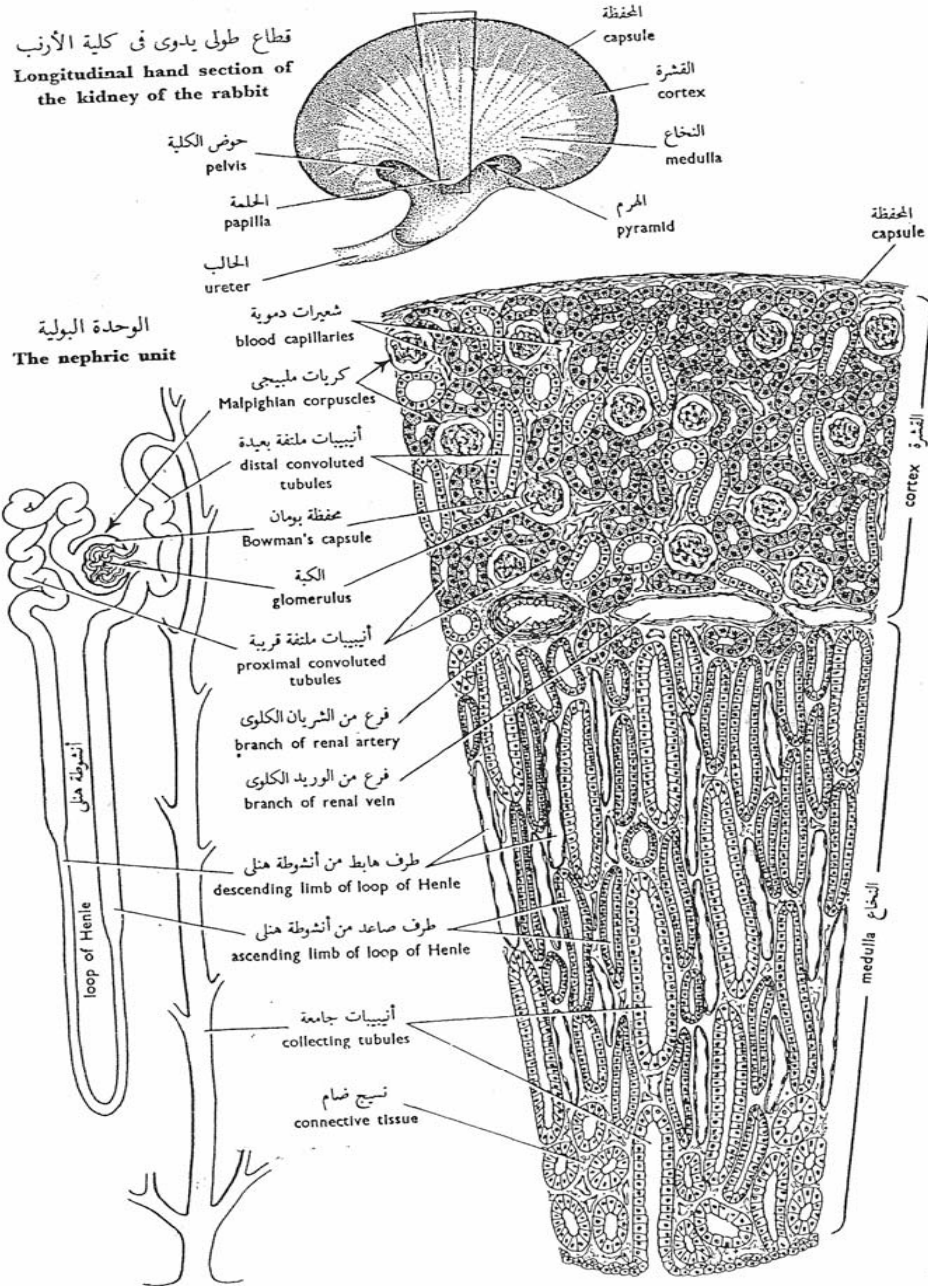 قطاع طولى يدوى فى كلية الأرنب
Longitudinal hand section of
the kidney of the rabbit
المحفظة
capsule
القشرة
cortex
النخاع
medulla
حوض الكلية
pelvis
الحلمة
papilla
الهرم
pyramid
الحالب
ureter
المحفظة
capsule
الوحدة البولية
The nephric unit
شعيرات دموية
blood capillaries
كريات ملبيجى
Malpighian corpuscles
أنيبيبات ملتفة بعيدة
distal convoluted
tubules
محفظة بومان
Bowman's capsule
الكبة
glomerulus
أنيبيبات ملتفة قريبة
proximal convoluted
tubules
فرع من الشريان الكلوى
branch of renal artery
فرع من الوريد الكلوى
branch of renal vein
طرف هابط من أنشوطة هنلى
descending limb of loop of Henle
طرف صاعد من أنشوطة هنلى
ascending limb of loop of Henle
أنيبيبات جامعة
collecting tubules
نسيج ضام
connective tissue
أنشوطة هنلى
loop of Henle
cortex القشرة
medulla النخاع